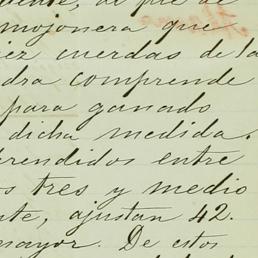 de pie de
mojonera que
diez cuerdas de la
dra comprende
para ganado
dicha medida.
prendidos entre
os tres y medio
nte, ajustan 42.
mayor. De estos